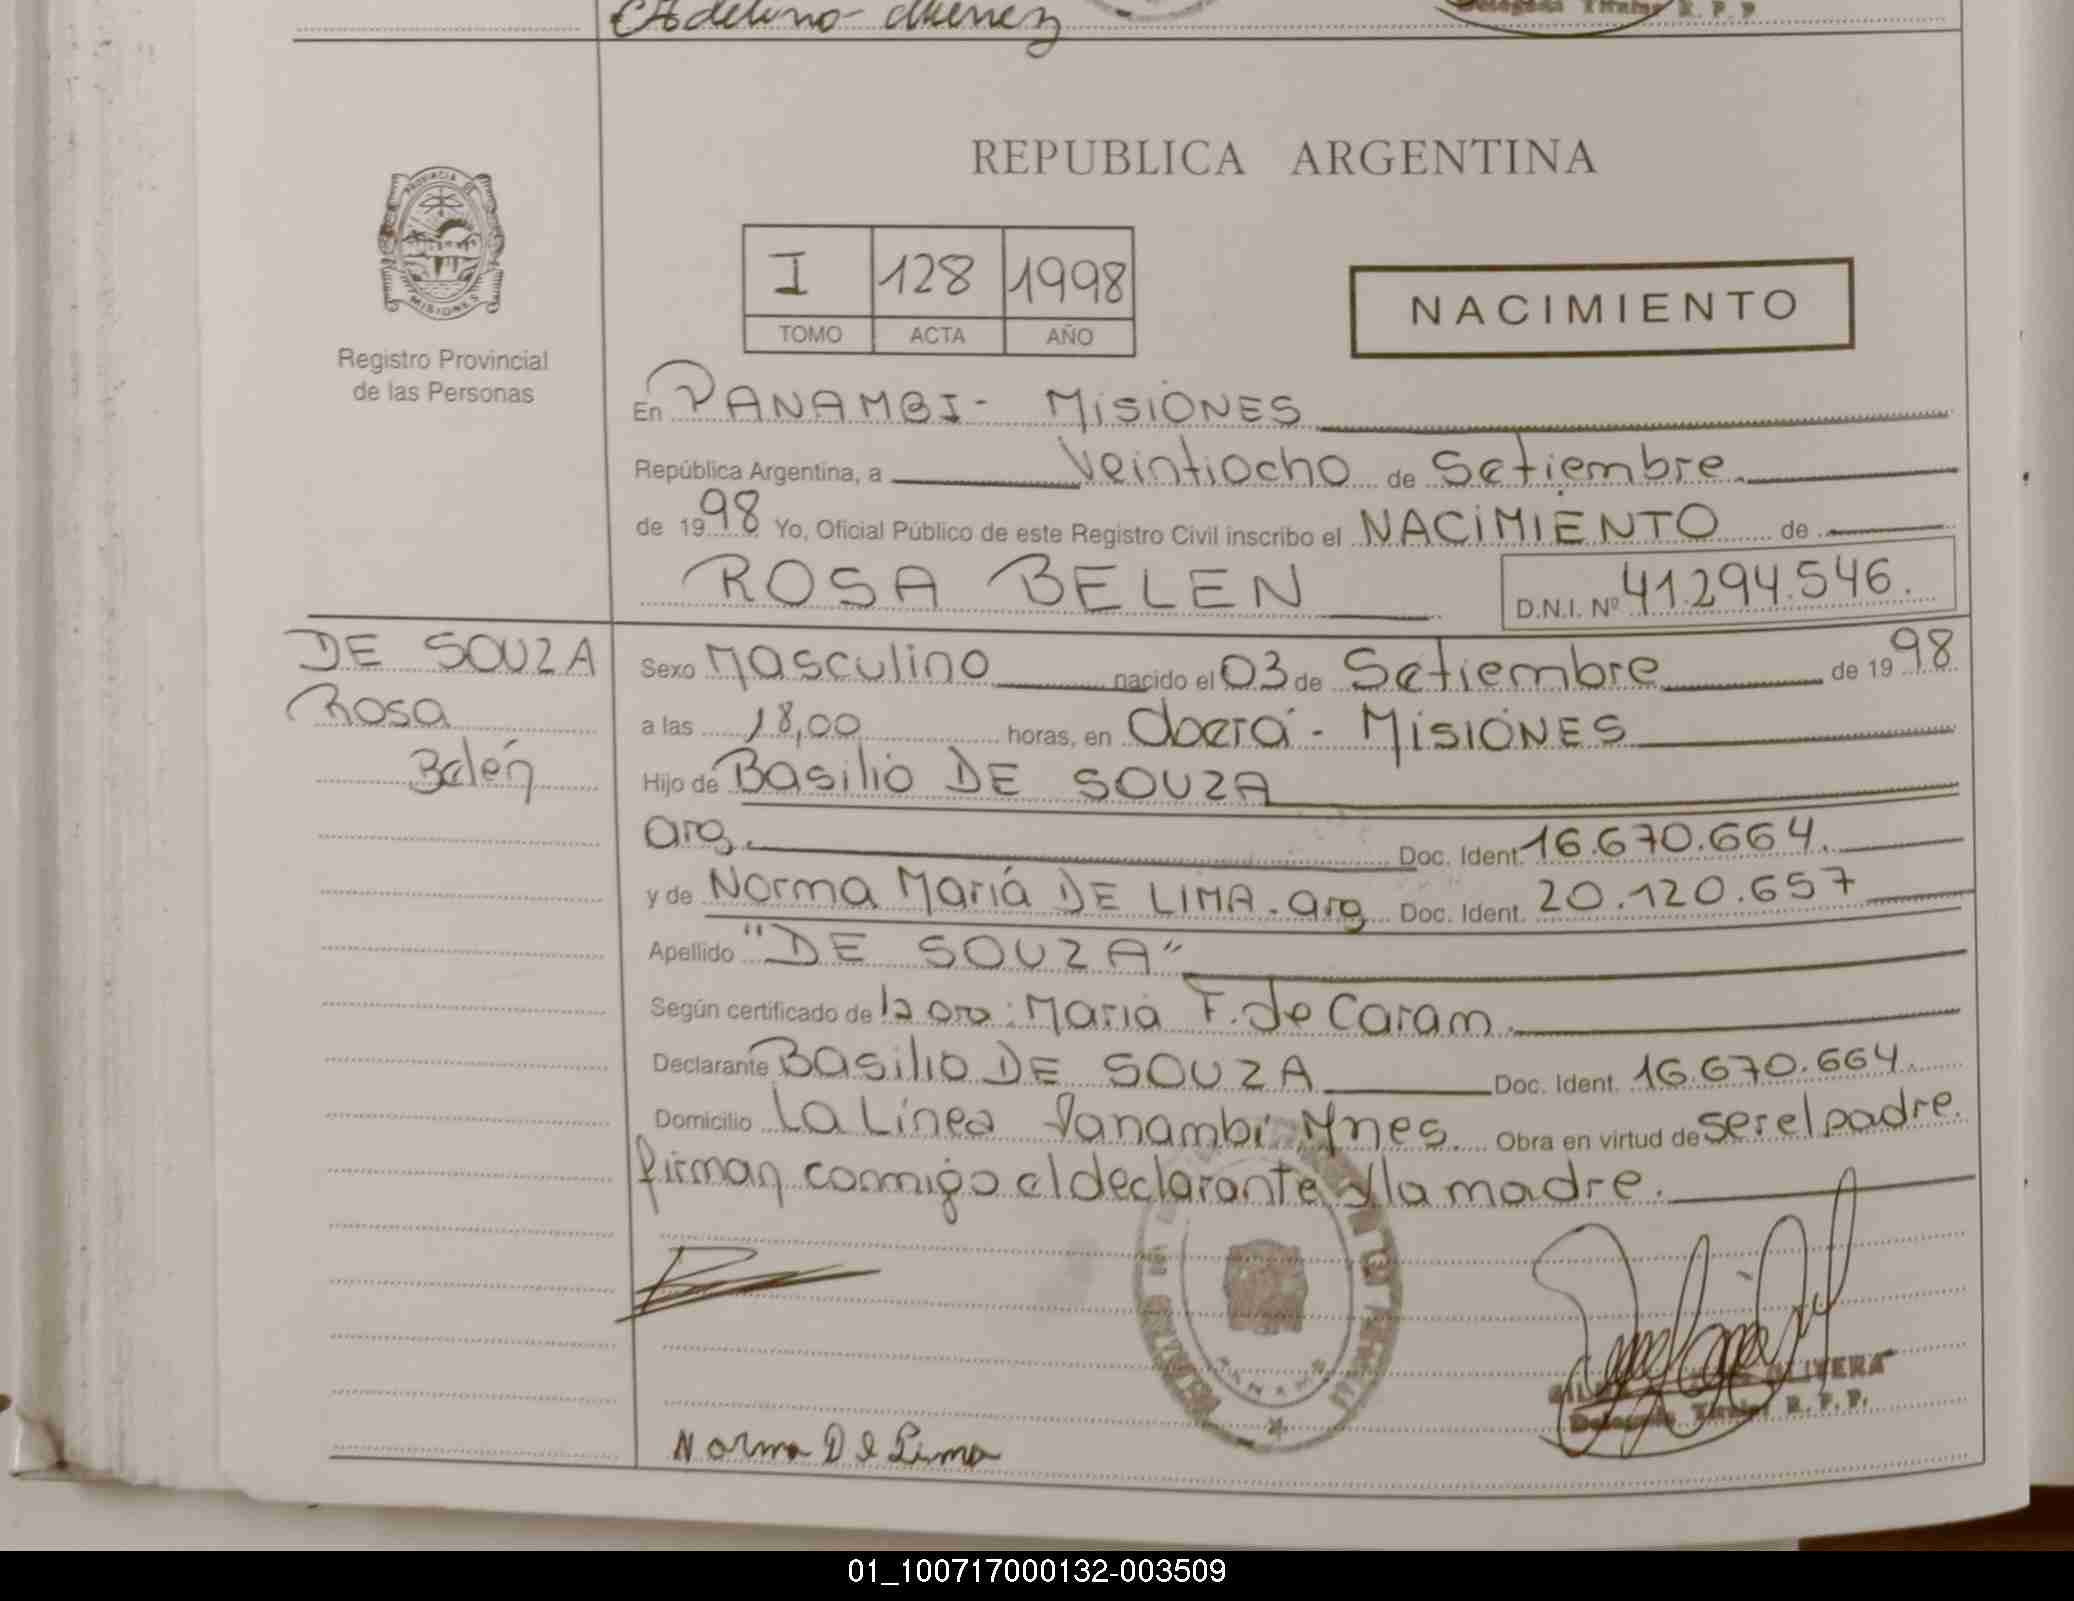 Adelino
Delegada Titular R. P. P.
PROVINCIA DE
MISIONES
Registro Provincial
de las Personas
REPUBLICA ARGENTINA
I 128 1998
TOMO ACTA AÑO
NACIMIENTO
En PANAMBI - MISIONES
República Argentina, a Veintiocho de Setiembre
de 1998 Yo, Oficial Público de este Registro Civil inscribo el NACIMIENTO de
ROSA BELEN D.N.I. Nº 41.294.546.
DE SOUZA
Rosa
Belén
Sexo Masculino nacido el 03 de Setiembre de 1998
a las 18,00 horas, en Oberá - MISIONES
Hijo de Basilio DE SOUZA
arg. Doc. Ident. 16.670.664.
y de Norma Mariá DE LIMA. arg Doc. Ident. 20.120.657
Apellido "DE SOUZA"
Según certificado de la : Maria F. de Caram.
Declarante Basilio DE SOUZA Doc. Ident. 16.670.664.
Domicilio La Línea Panambi Mnes. Obra en virtud de ser el padre.
firman conmigo el declarante y la madre.
OLIVERA
Delegada Titular R. P. P.
Norma De Lima
01_100717000132-003509